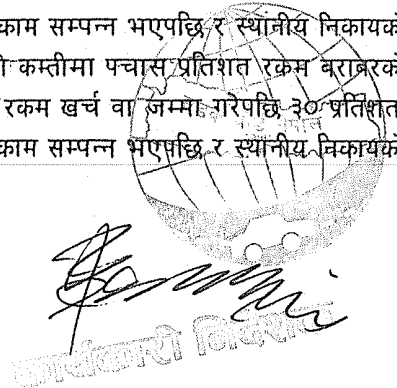 काम सम्पन्न भएपछि र स्थानीय निकायको
कम्तीमा पचास प्रतिशत रकम बराबरको
रकम खर्च वा जम्मा गरेपछि ३० प्रतिशत
काम सम्पन्न भएपछि र स्थानीय निकायको
कार्यकारी निर्देशक